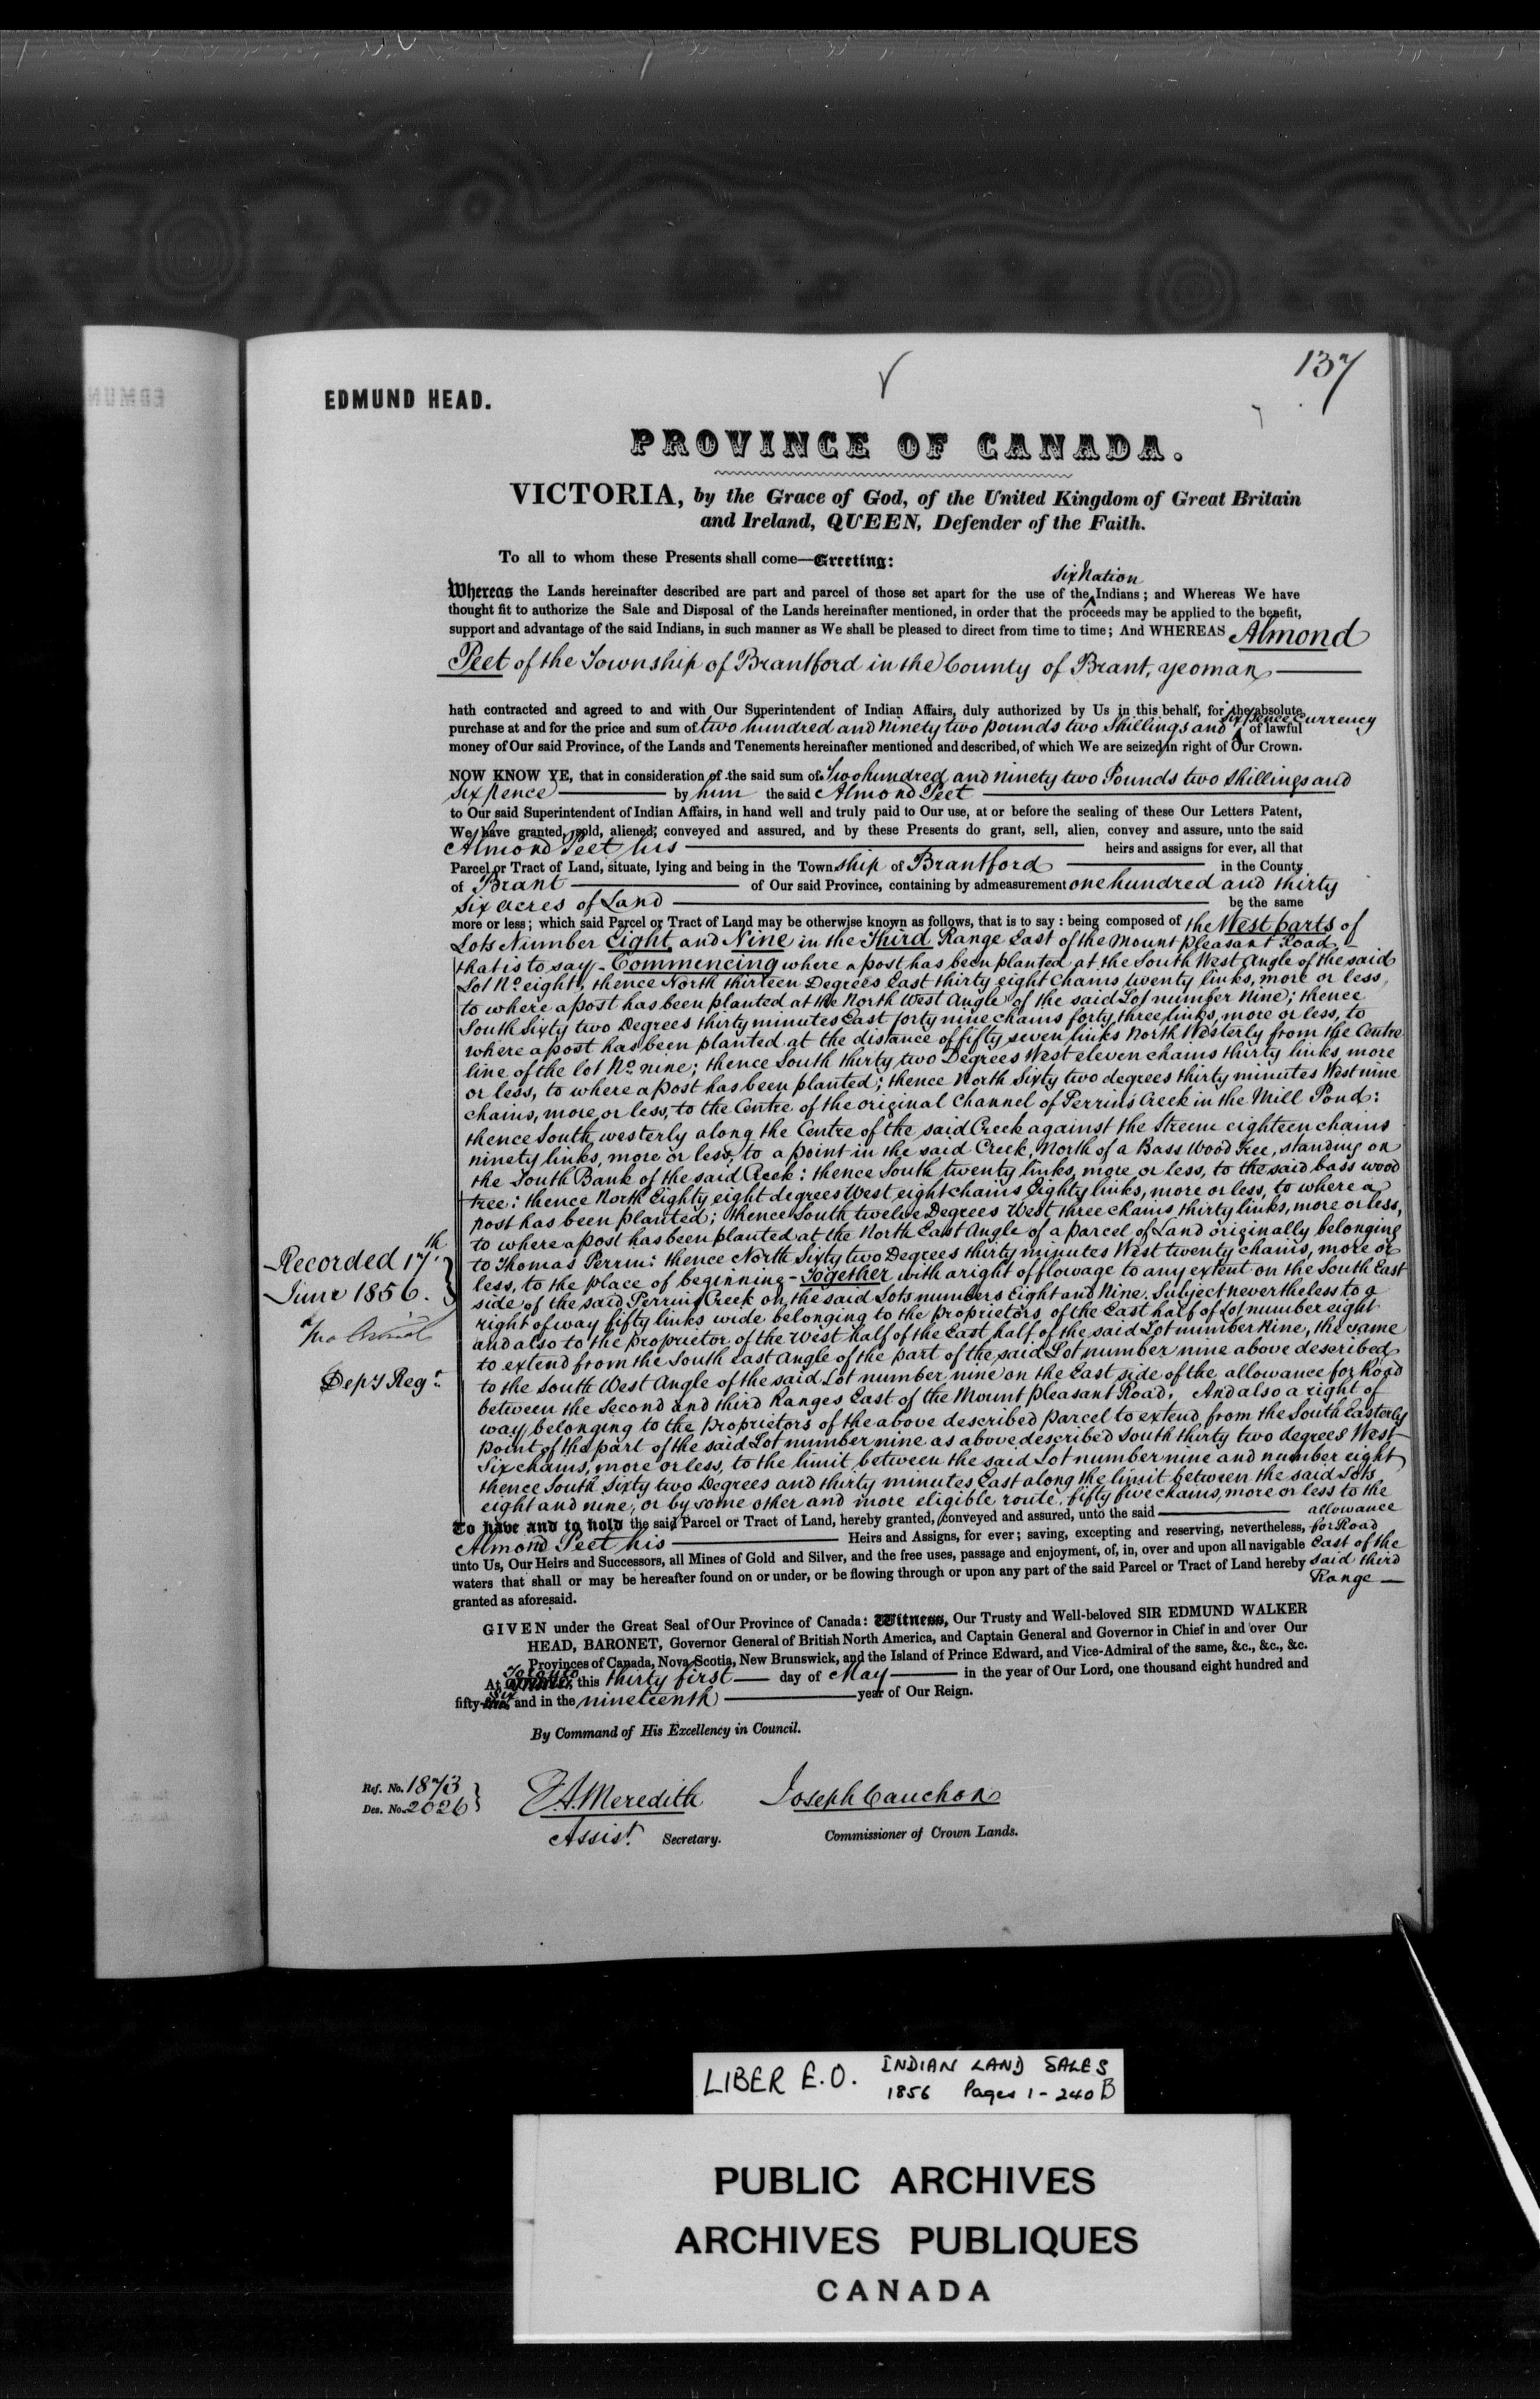 137
EDMUND HEAD.
PROVINCE OF CANADA.
VICTORIA, by the Grace of God, of the United Kingdom of Great Britain
and Ireland, QUEEN, Defender of the Faith.
To all to whom these Presents shall come—Greeting:
Six Nation
Whereas the Lands hereinafter described are part and parcel of those set apart for the use of the Indians; and Whereas We have
thought fit to authorize the Sale and Disposal of the Lands hereinafter mentioned, in order that the proceeds may be applied to the benefit,
support and advantage of the said Indians, in such manner as We shall be pleased to direct from time to time; And WHEREAS Almond
Peet of the Township of Brantford in the County of Brant, yeoman
hath contracted and agreed to and with Our Superintendent of Indian Affairs, duly authorized by Us in this behalf, for the absolute
Six pence Currency
purchase at and for the price and sum of two hundred and ninety two pounds two Shillings and of lawful
money of Our said Province, of the Lands and Tenements hereinafter mentioned and described, of which We are seized in right of Our Crown.
NOW KNOW YE, that in consideration of the said sum of Two hundred and ninety two Pounds two shillings and
Six pence by him the said Almond Peet
to Our said Superintendent of Indian Affairs, in hand well and truly paid to Our use, at or before the sealing of these Our Letters Patent,
We have granted, sold, aliened, conveyed and assured, and by these Presents do grant, sell, alien, convey and assure, unto the said
Almond Peet, his heirs and assigns for ever, all that
Parcel or Tract of Land, situate, lying and being in the Township of Brantford in the County
of Brant of Our said Province, containing by admeasurement one hundred and thirty
six acres of Land be the same
more or less; which said Parcel or Tract of Land may be otherwise known as follows, that is to say: being composed of the West parts of
Lots Number Eight and Nine in the Third Range East of the Mount Pleasant Road,
that is to say - Commencing where a post has been planted at the South West Angle of the said
Lot No eight, thence North thirteen Degrees East thirty eight Chains twenty links, more or less,
to where a post has been planted at the North West Angle of the said Lot number Nine; thence
South Sixty two Degrees thirty minutes East forty nine chains forty three links, more or less, to
where a post has been planted at the distance of fifty seven links North Westerly from the Centre
line of the lot No nine; thence South thirty two Degrees West eleven chains thirty links, more
or less, to where a post has been planted; thence North Sixty two degrees thirty minutes West nine
chains, more or less, to the Centre of the original Channel of Perrins Creek in the Mill Pond:
thence South westerly along the Centre of the said Creek against the Streem eighteen chains
ninety links, more or less, to a point in the said Creek, North of a Bass Wood Tree, standing on
the South Bank of the said Creek: thence South twenty links, more or less, to the said bass wood
tree: thence North Eighty eight degrees West, eight chains Eighty links, more or less, to where a
post has been planted; thence South twelve Degrees West three chains thirty links, more or less,
to where a post has been planted at the North East Angle of a parcel of Land originally belonging
to Thomas Perrin: thence North Sixty two Degrees thirty minutes West twenty chains, more or
less, to the place of beginning - Together with a right of flowage to any extent on the South East
side of the said Perrins Creek on the said Lots numbers Eight and Nine. Subject nevertheless to a
right of way fifty links wide belonging to the proprietors of the East half of Lot number eight
and also to the proprietor of the West half of the East half of the said Lot number Nine, the same
to extend from the South East Angle of the part of the said Lot number nine above described
to the South West Angle of the said Lot number nine on the East side of the allowance for Road
between the Second and third Ranges East of the Mount Pleasant Road. And also a right of
way belonging to the proprietors of the above described parcel to extend from the South Easterly
point of the part of the said Lot number nine as above described South thirty two degrees West
Six chains, more or less, to the limit between the said Lot number nine and number eight
thence South Sixty two Degrees and thirty minutes East along the limit between the said Lots
eight and nine, or by some other and more eligible route, fifty five chains, more or less to the
allowance
for Road
East of the
said third
Range
Recorded 17th
June 1856.
Depy Regr
To have and to hold the said Parcel or Tract of Land, hereby granted, conveyed and assured, unto the said
Almond Peet his Heirs and Assigns, for ever; saving, excepting and reserving, nevertheless,
unto Us, Our Heirs and Successors, all Mines of Gold and Silver, and the free uses, passage and enjoyment, of, in, over and upon all navigable
waters that shall or may be hereafter found on or under, or be flowing through or upon any part of the said Parcel or Tract of Land hereby
granted as aforesaid.
GIVEN under the Great Seal of Our Province of Canada: Witness, Our Trusty and Well-beloved SIR EDMUND WALKER
HEAD, BARONET, Governor General of British North America, and Captain General and Governor in Chief in and over Our
Provinces of Canada, Nova Scotia, New Brunswick, and the Island of Prince Edward, and Vice-Admiral of the same, &c., &c., &c.
At Toronto, this thirty first day of May in the year of Our Lord, one thousand eight hundred and
fifty-six and in the nineteenth year of Our Reign.
By Command of His Excellency in Council.
Ref. No. 1873
Des. No. 2026
E.A. Meredith
Assist. Secretary.
Joseph Cauchon
Commissioner of Crown Lands.
LIBER E.O. INDIAN LAND SALES
1856 Pages 1-240B
PUBLIC ARCHIVES
ARCHIVES PUBLIQUES
CANADA